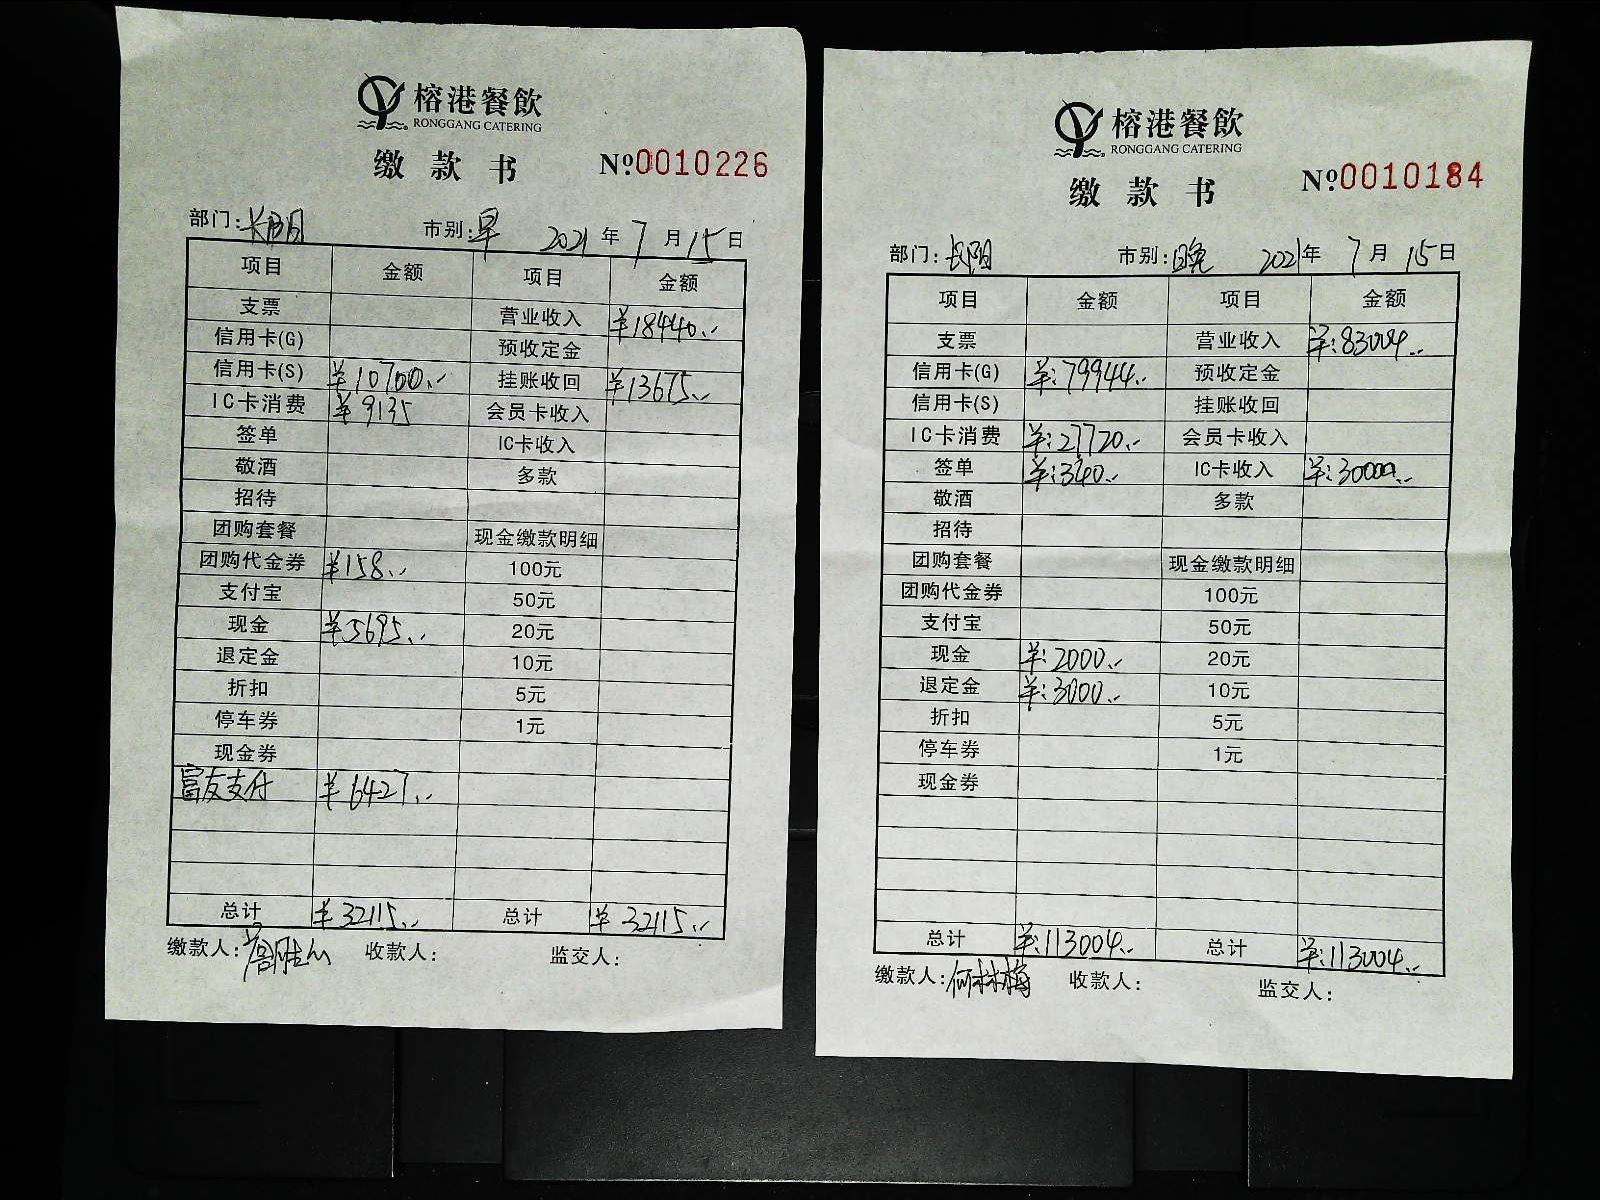 榕港餐飲
RONGGANG CATERING
缴 款 书 Nº0010226
部门: 长阳 市别: 早 2021 年 7 月 15 日
项目 金额 项目 金额
支票 营业收入 ¥18440..
信用卡(G) 预收定金
信用卡(S) ¥10700.. 挂账收回 ¥13675..
IC卡消费 ¥9135 会员卡收入
签单 IC卡收入
敬酒 多款
招待
团购套餐 现金缴款明细
团购代金券 ¥158.. 100元
支付宝 50元
现金 ¥5695.. 20元
退定金 10元
折扣 5元
停车券 1元
现金券
富友支付 ¥6427..
总计 ¥32115.. 总计 ¥32115..
缴款人: 收款人: 监交人:
榕港餐飲
RONGGANG CATERING
缴 款 书 Nº0010184
部门: 长阳 市别: 晚 2021年 7 月 15日
项目 金额 项目 金额
支票 营业收入 ¥:83004..
信用卡(G) ¥:79944.. 预收定金
信用卡(S) 挂账收回
IC卡消费 ¥:27720.. 会员卡收入
签单 ¥:340.. IC卡收入 ¥:30000..
敬酒 多款
招待
团购套餐 现金缴款明细
团购代金券 100元
支付宝 50元
现金 ¥:2000.. 20元
退定金 ¥:3000.. 10元
折扣 5元
停车券 1元
现金券
总计 ¥:113004.. 总计 ¥:113004..
缴款人: 何林梅 收款人: 监交人: